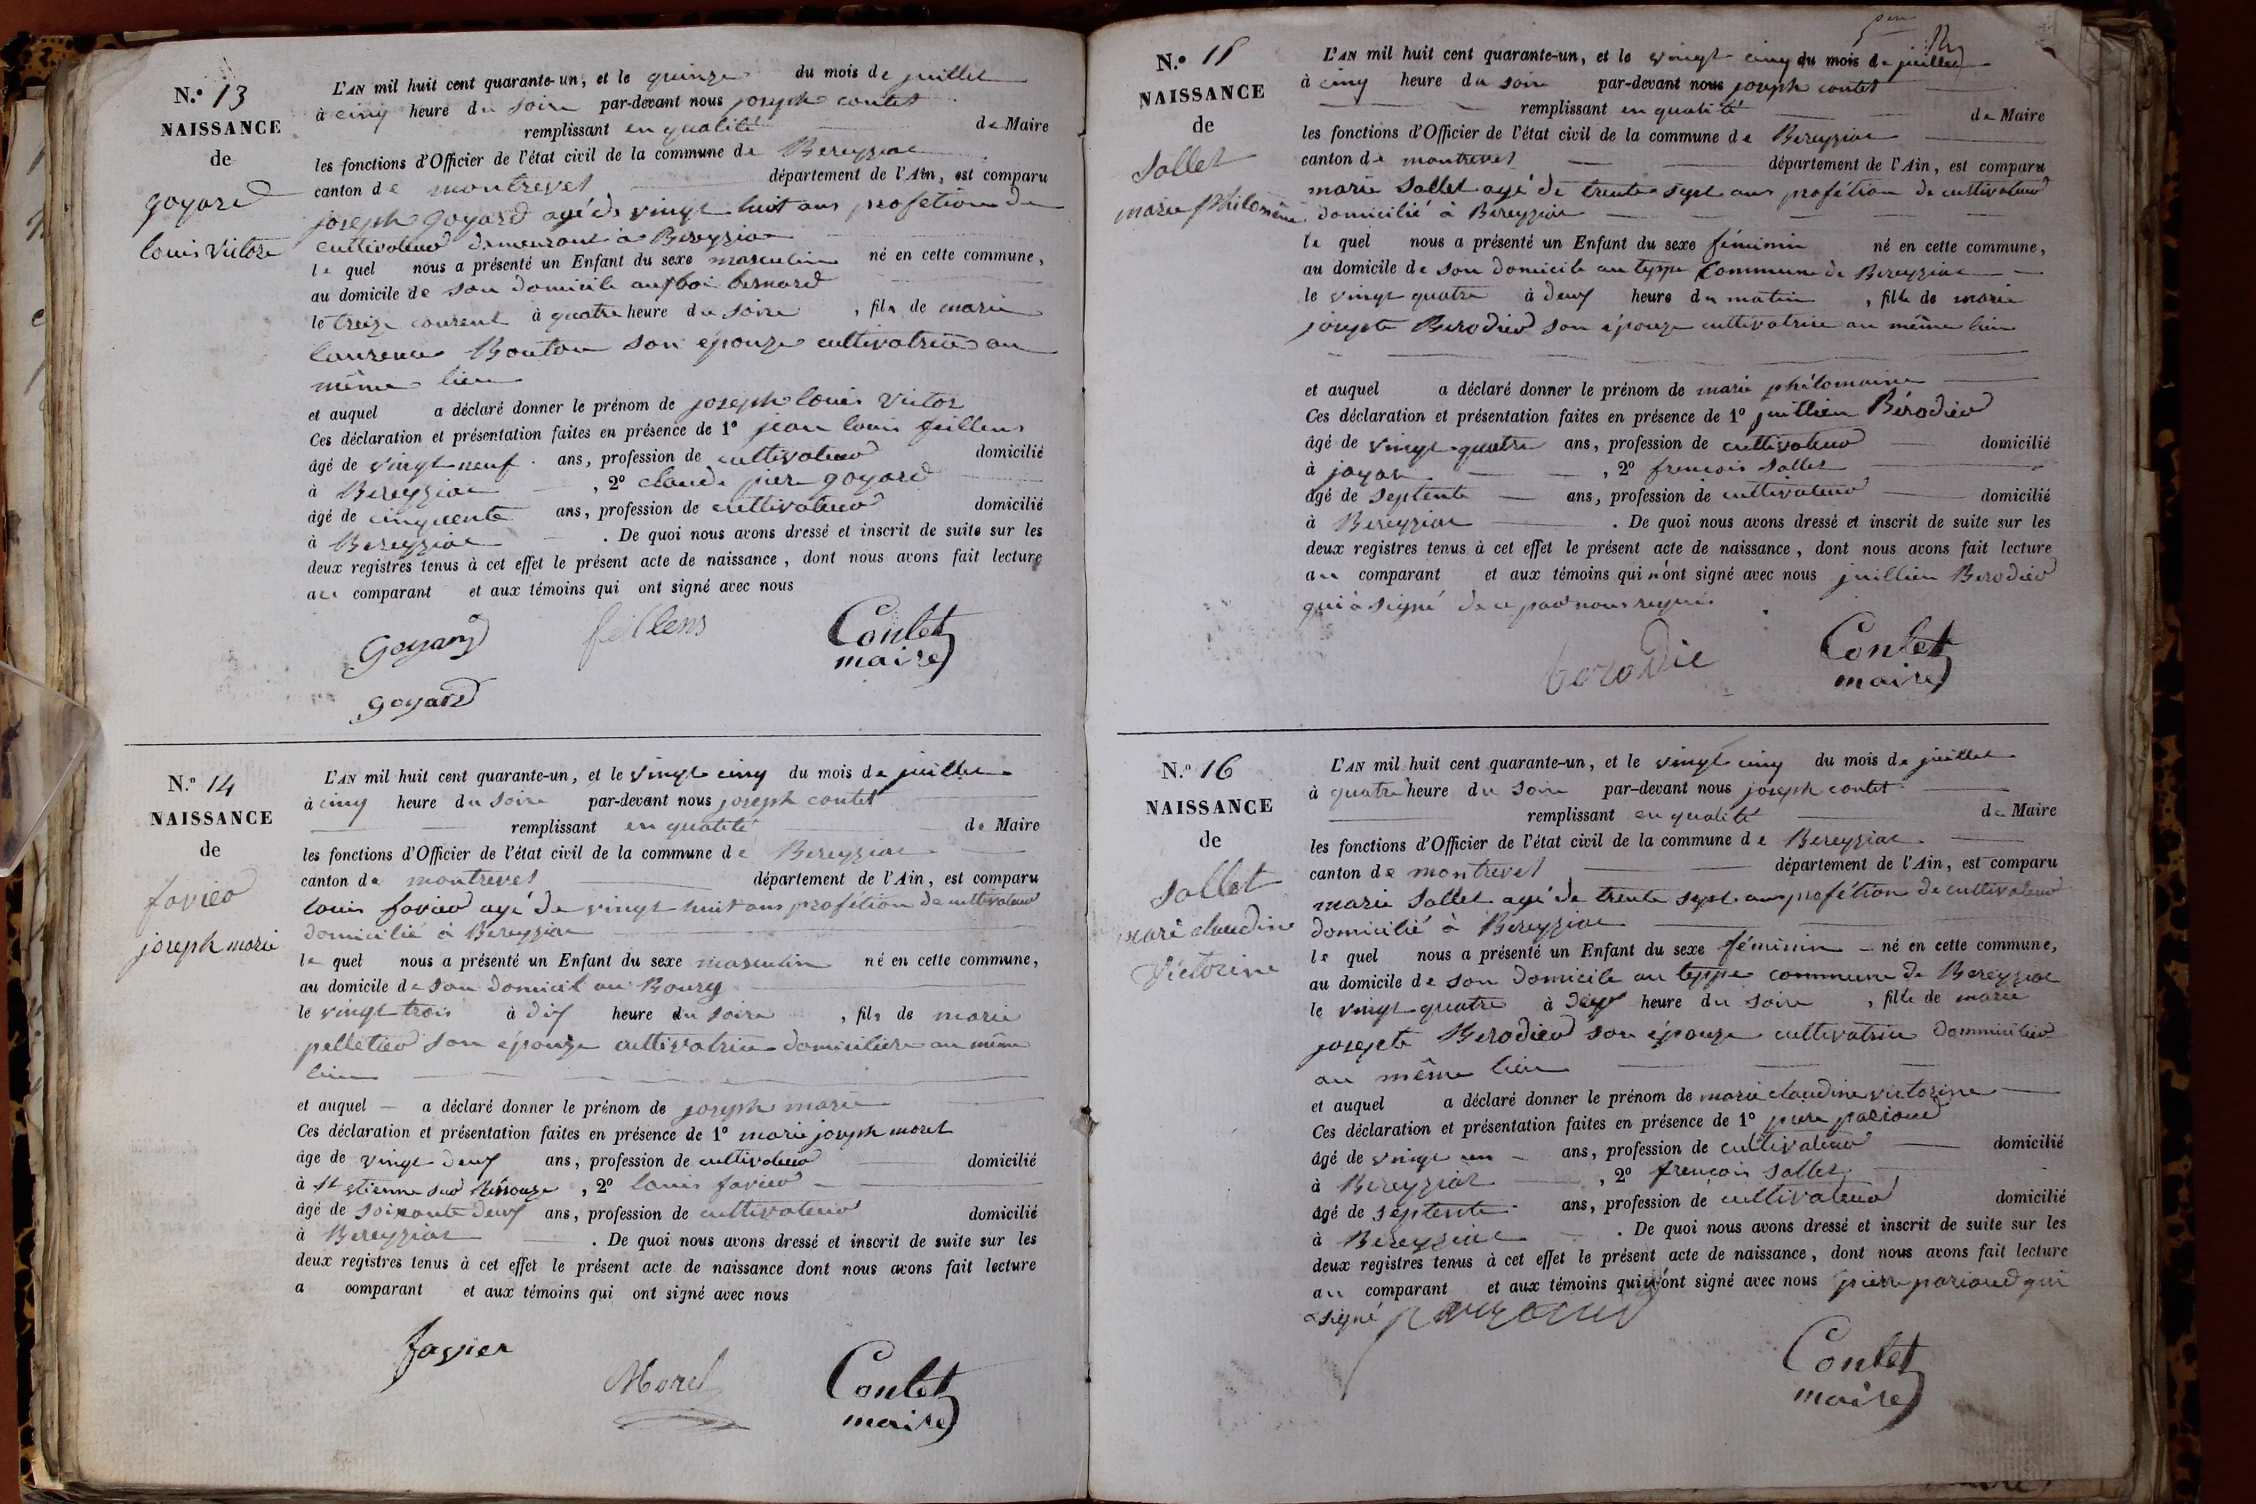 N.° 13
NAISSANCE
de
goyard
louis victore
L'AN mil huit cent quarante-un, et le quinze du mois de juillet
à cinq heure du soire par-devant nous joseph contet
remplissant en qualité de Maire
les fonctions d'Officier de l'état civil de la commune de Bereyziac
canton de montrevel département de l'Ain, est comparu
joseph goyard agé de vingt huit ans profetion de
cultivateur demeurant à Bereyziac
le quel nous a présenté un Enfant du sexe masculin né en cette commune,
au domicile de son domicile au boi bernard
le treize courent à quatre heure du soire, fils de marie
laurence Bouton son épouze cultivatrice au
même lieu
et auquel a déclaré donner le prénom de joseph louis victor
Ces déclaration et présentation faites en présence de 1° jean louis feillens
âgé de vingt neuf ans, profession de cultivateur domicilié
à Bereyziac, 2° claude piere goyard
âgé de cinquente ans, profession de cultivateur domicilié
à Bereyziac. De quoi nous avons dressé et inscrit de suite sur les
deux registres tenus à cet effet le présent acte de naissance, dont nous avons fait lecture
au comparant et aux témoins qui ont signé avec nous
Goyard feillens Contet
maire
goyard
N.° 14
NAISSANCE
de
favier
joseph marie
L'AN mil huit cent quarante-un, et le vingt cinq du mois de juillet
à cinq heure du soire par-devant nous joseph contet
remplissant en qualité de Maire
les fonctions d'Officier de l'état civil de la commune de Bereyziac
canton de montrevel département de l'Ain, est comparu
louis favier agé de vingt huit ans profétion de cultivateur
domicilié à Bereyziac
le quel nous a présenté un Enfant du sexe masculin né en cette commune,
au domicile de son domicil au Bourg
le vingt trois à dix heure du soire, fils de marie
pelletier son épouze cultivatrice domiciliere au même
lieu
et auquel a déclaré donner le prénom de joseph marie
Ces déclaration et présentation faites en présence de 1° marie joseph morel
âge de vingt deux ans, profession de cultivateur domicilié
à St etienne sur Ressouze, 2° louis favier
âgé de soixante deux ans, profession de cultivateur domicilié
à Bereyziac. De quoi nous avons dressé et inscrit de suite sur les
deux registres tenus à cet effet le présent acte de naissance dont nous avons fait lecture
a comparant et aux témoins qui ont signé avec nous
favier
Morel Contet
maire
N.° 15
NAISSANCE
de
Sallet
marie philomène
L'AN mil huit cent quarante-un, et le vingt cinq du mois de juillet
à cinq heure du soire par-devant nous joseph contet
remplissant en qualité de Maire
les fonctions d'Officier de l'état civil de la commune de Bereyziac
canton de montrevel département de l'Ain, est comparu
marie Sallet agé de trente sept ans profétion de cultivateur
domicilié à Bereyziac
le quel nous a présenté un Enfant du sexe féminin né en cette commune,
au domicile de son domicile au teppe Commune de Bereyziac
le vingt quatre à deux heure du matin, fille de marie
josepte Berodier son épouze cultivatrice au même lieu
et auquel a déclaré donner le prénom de marie philomaine
Ces déclaration et présentation faites en présence de 1° juillien Bérodier
âgé de vingt quatre ans, profession de cultivateur domicilié
à jayat, 2° frençois Sallet
âgé de septente ans, profession de cultivateur domicilié
à Bereyziac. De quoi nous avons dressé et inscrit de suite sur les
deux registres tenus à cet effet le présent acte de naissance, dont nous avons fait lecture
au comparant et aux témoins qui n'ont signé avec nous juillien Berodier
qui à signé de ce par nous requis
berodie Contet
maire
N.° 16
NAISSANCE
de
Sallet
marie claudine
Victorine
L'AN mil huit cent quarante-un, et le vingt cinq du mois de juillet
à quatre heure du soire par-devant nous joseph contet
remplissant en qualité de Maire
les fonctions d'Officier de l'état civil de la commune de Bereyziac
canton de montrevel département de l'Ain, est comparu
marie Sallet agé de trente sept ans profétion de cultivateur
domicilié à Bereyziac
le quel nous a présenté un Enfant du sexe féminin né en cette commune,
au domicile de son domicile au teppe commune de Bereyziac
le vingt quatre à heure du soire, fille de marie
josepte Berodier son épouze cultivatrice dommicilier
au même lieu
et auquel a déclaré donner le prénom de marie claudine victorine
Ces déclaration et présentation faites en présence de 1° piere pariaud
âgé de vingt un ans, profession de cultivateur domicilié
à Bereyziac, 2° frençois Sallet
âgé de septente ans, profession de cultivateur domicilié
à Bereyziac. De quoi nous avons dressé et inscrit de suite sur les
deux registres tenus à cet effet le présent acte de naissance, dont nous avons fait lecture
au comparant et aux témoins qui n'ont signé avec nous pierre pariaud qui
a signé
Contet
maire